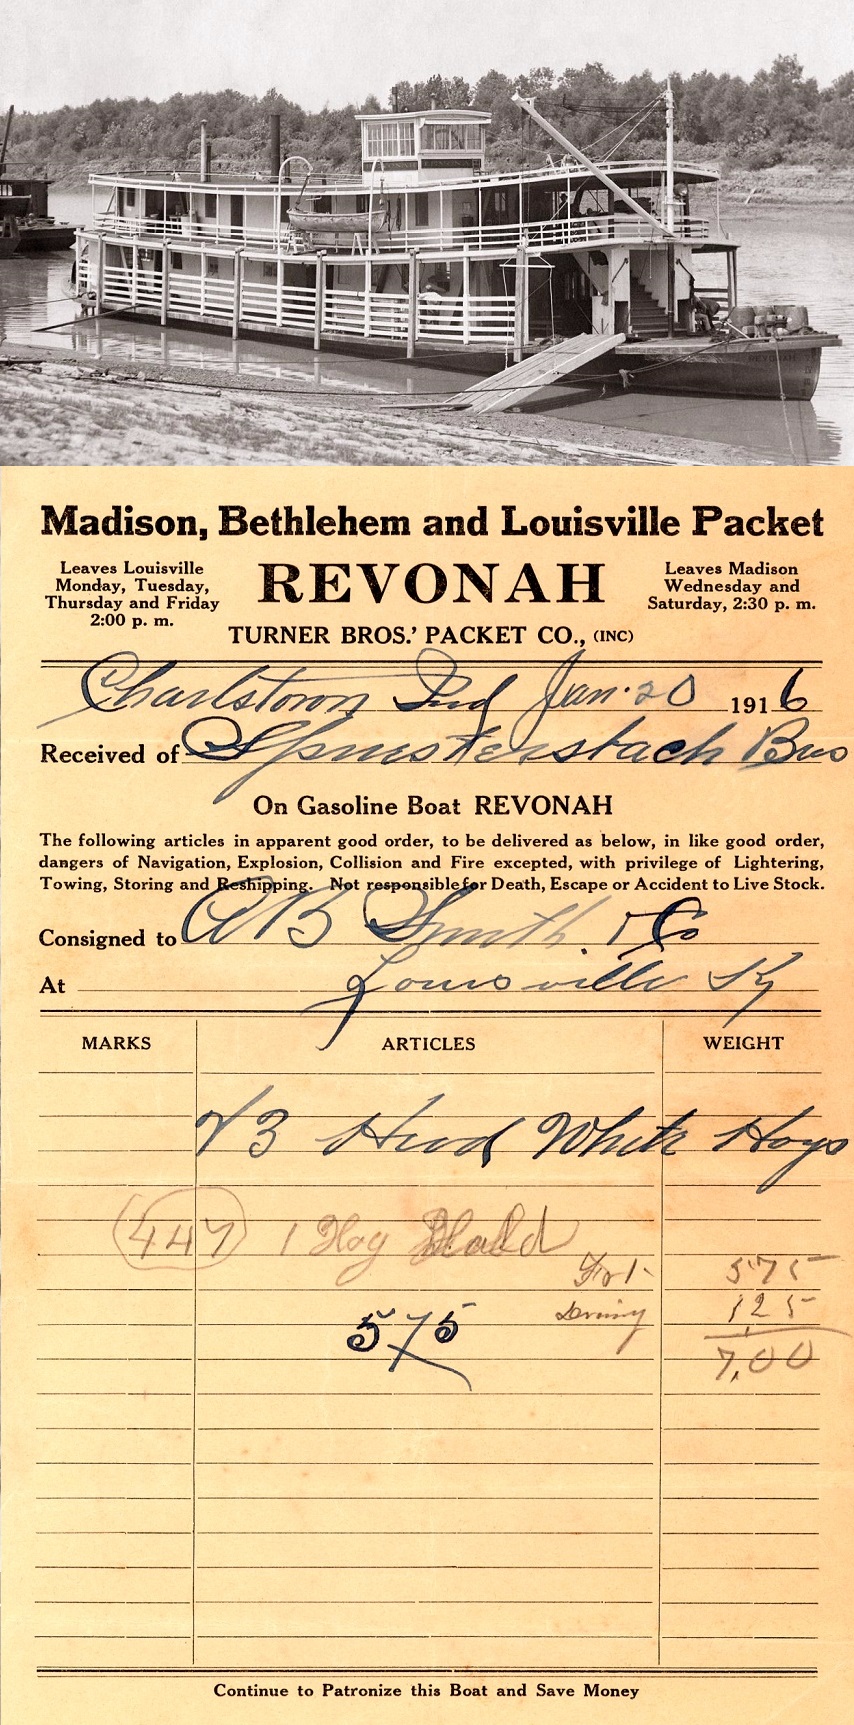 REVONAH
REVONAH
Madison, Bethlehem and Louisville Packet
Leaves Louisville
Monday, Tuesday,
Thursday and Friday
2:00 p. m.
REVONAH
TURNER BROS.' PACKET CO., (INC)
Leaves Madison
Wednesday and
Saturday, 2:30 p. m.
Charlstown Ind Jan. 20 1916
Received of Bros
On Gasoline Boat REVONAH
The following articles in apparent good order, to be delivered as below, in like good order,
dangers of Navigation, Explosion, Collision and Fire excepted, with privilege of Lightering,
Towing, Storing and Reshipping. Not responsible for Death, Escape or Accident to Live Stock.
Consigned to Smith & Co
At Louisville Ky
MARKS ARTICLES WEIGHT
Head White Hogs
447 1 Hog
Frt 575
125
575
7.00
Continue to Patronize this Boat and Save Money